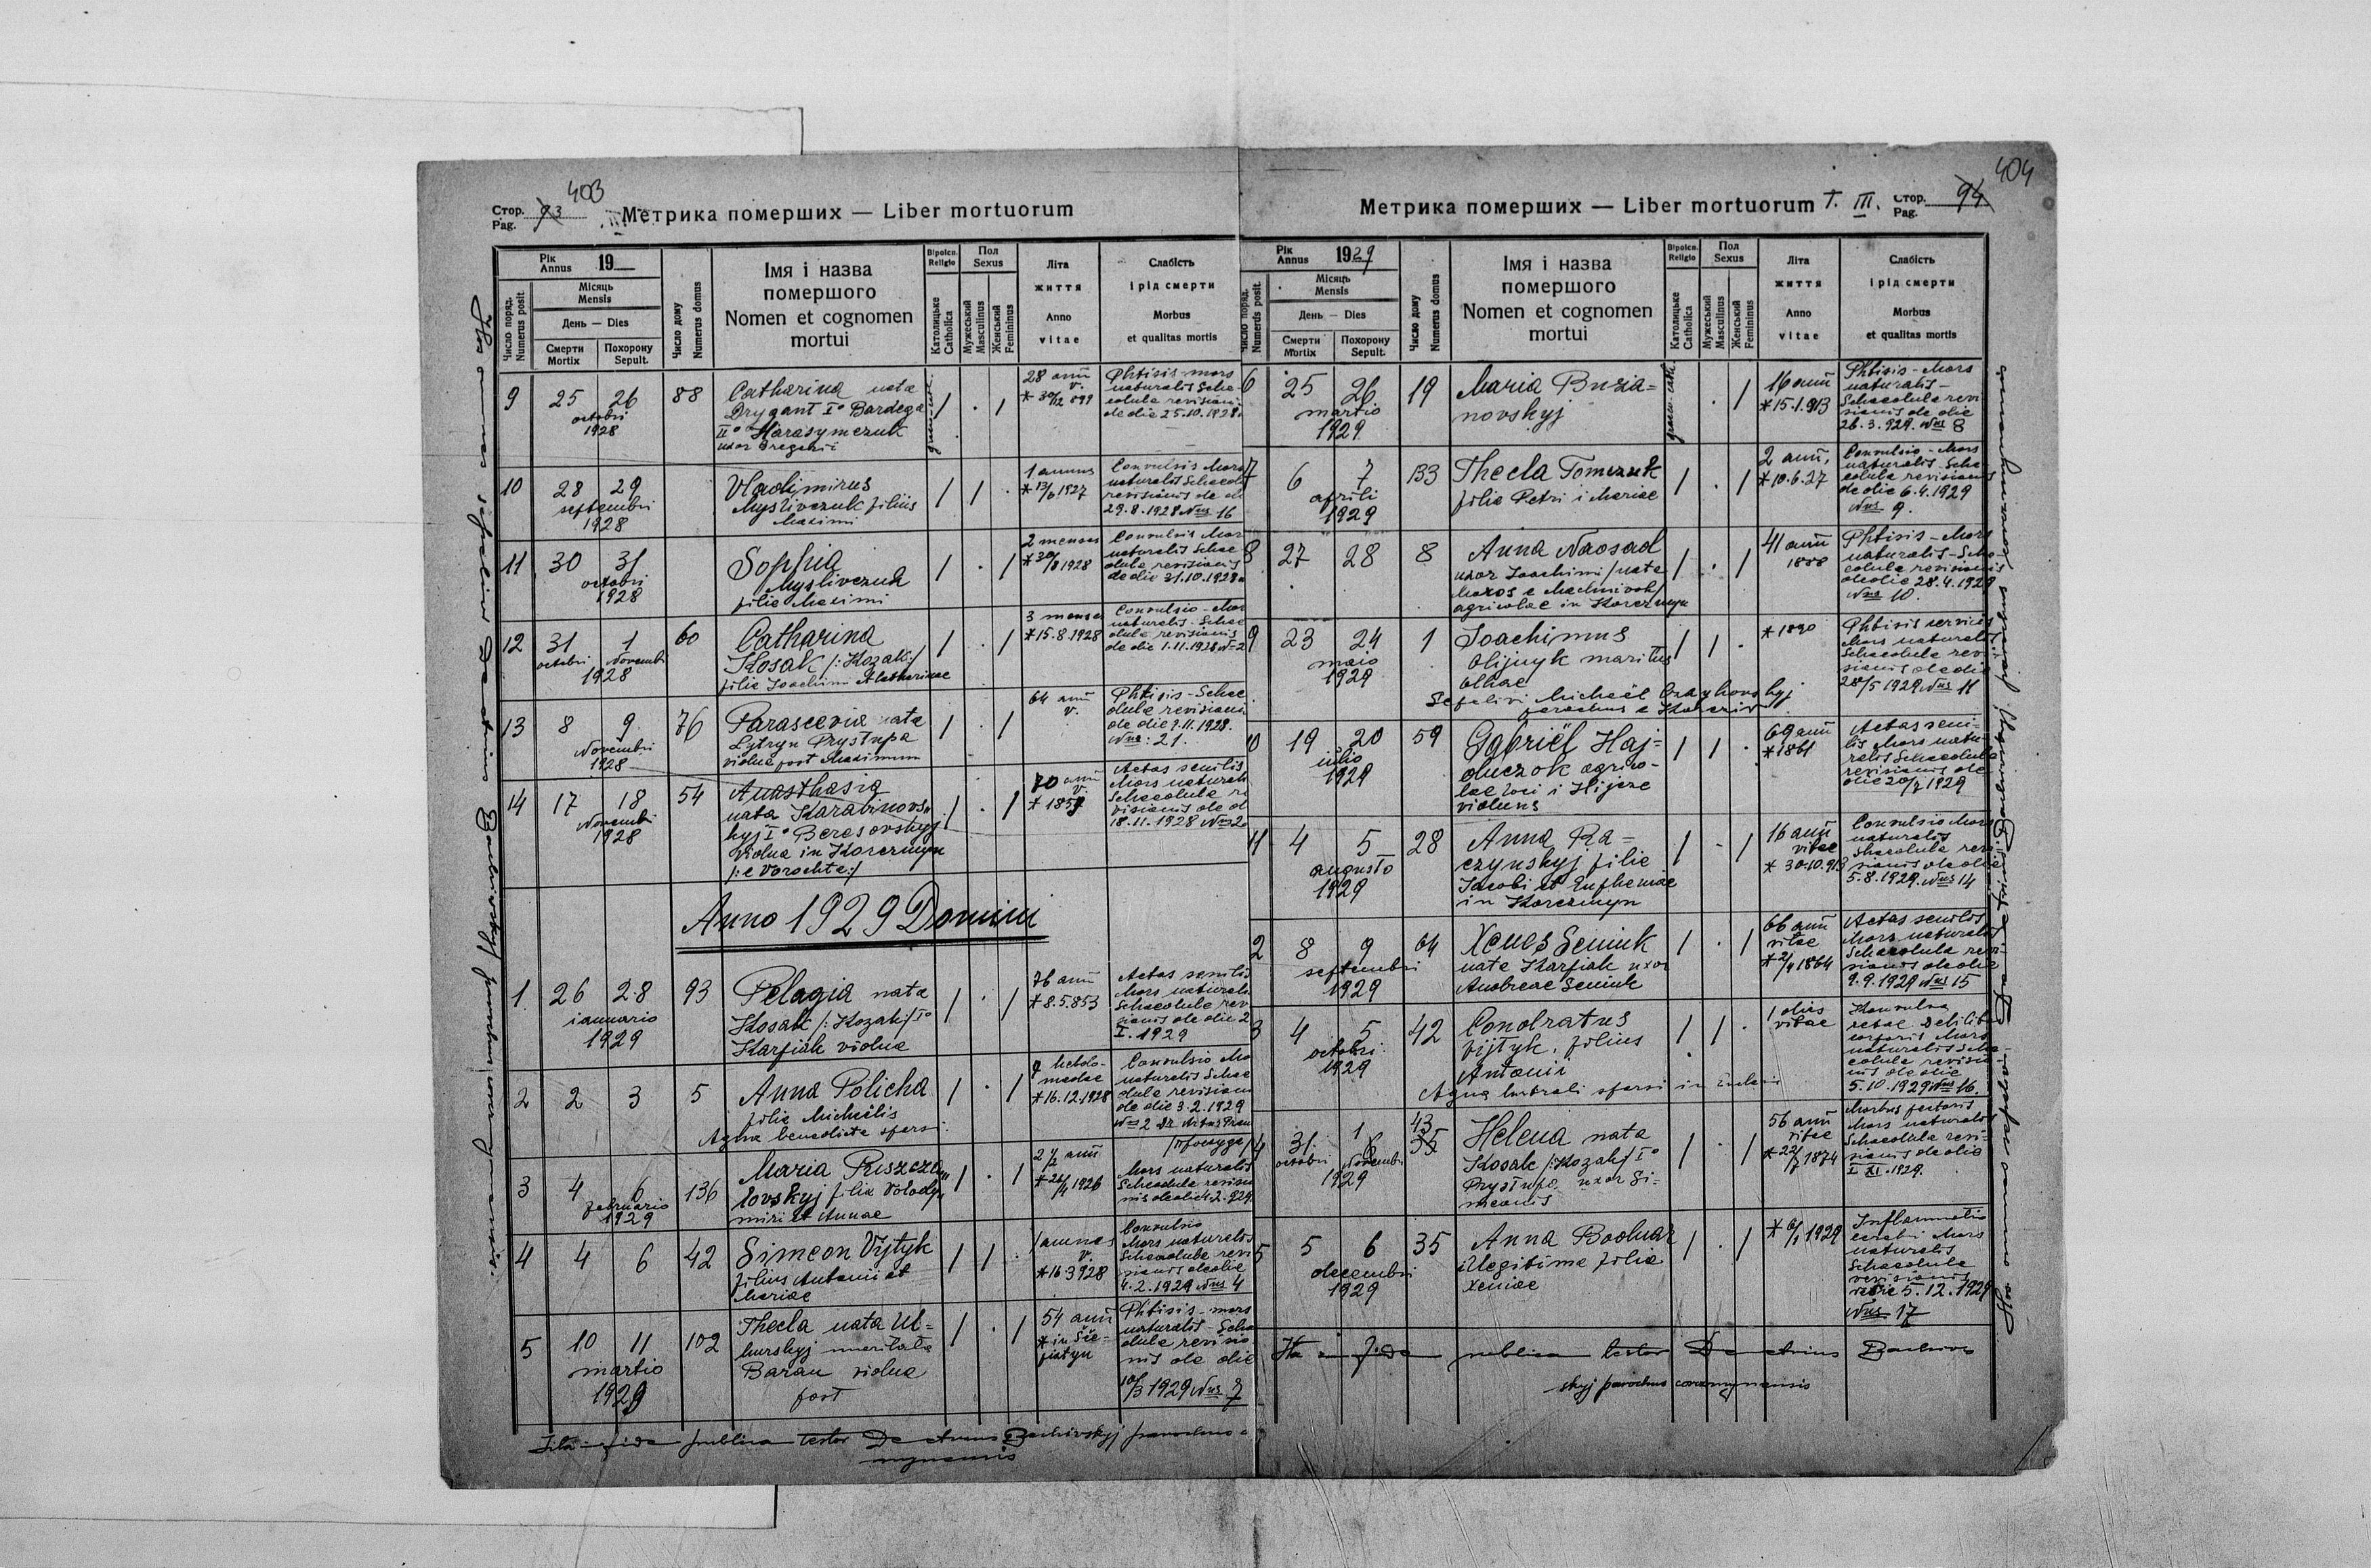 403
Стор. 93
Pag.
III Метрика померших — Liber mortuorum
Рік
Annus 19
Число поряд.
Numerus posit.
Місяць
Mensis
День — Dies
Смерти
Mortix
Похорону
Sepult.
Число дому
Numerus domus
Імя і назва
помершого
Nomen et cognomen
mortui
Віроісп.
Religio
Католицьке
Catholica
Пол
Sexus
Мужеський
Masculinus
Женський
Femininus
Літа
життя
Anno
vitae
Слабість
і рід смерти
Morbus
et qualitas mortis
9 25 26 octobri 1928 88
Catharina nata
Drygant I° Bardega
II° Harasymczuk
uxor Gregorii
28 anni
v.
* 30/12 899
Phtisis-mors
naturalis Sche-
dula revisionis
de die 25.10.1928.
10 28 29 septembri 1928
Vladimirus
Myslivczuk filius
Maximi
1 annus
1927
Convulsis Mors
naturalis Schaedu
revisionis de di
29.8.1928 Nus 16
11 30 31 octobri 1928
Sophia
Myslivczuk
filia Maximi
2 menses
* 30/8 1928
Convulsis Mor
naturalis Schae
dula revisionis
de die 31.10.1928
12 31 octobri 1 Novembri 1928 60
Catharina
Kosak /:Kozak:/
filia Joachimi Catharinae
3 menses
* 15.8.1928
Convulsio - Mor
naturalis - Schae
dula revisionis
de die 1.11.1928 N=2
13 8 9 Novembri 1928 76
Parascevia nata
Lytryn Prystupa
vidua post Maximum
64 anni
v.
Phtisis - Schae
dula revisionis
de die 9.11.1928.
Nus: 21.
14 17 18 Novembri 1928 54
Anasthasia
nata Karabinovs-
kyj I° Beresovskyj
vidua in Korczmyn
/:e Vorochta:/
70 anni
v.
Aetas senilis
Mors naturali
Schaedula re
visionis de d
18.11.1928 Nus 2
Anno 1929 Domini
1 26 28 ianuario 1929 93
Pelagia nata
Kosak /:Kozak:/ I°
Karpiak vidua
76 anni
* 8.5.853
Aetas senilis
Mors naturali
Schaedula rev
sionis de die 2
I. 1929
2 2 3 5
Anna Policha
filia Michaëlis
Aqua benedicta spersi
7 hebdo-
madae
* 16.12.1928
Convulsio Mo
naturalis Schae
dula revisionis
de die 3.2.1929
3 4 6 februario 1929 136
Maria Ruszcza
lovskyj filia Volody-
miri et Annae
2 1/2 anni
1926
Mors naturalis
Schaedula revisio
nis de die 4.2.929
4 4 6 42
Simeon Vijtyk
filius Antonii et
Mariae
1 annus
v.
* 16.3 928
Convulsio
Mors naturalis
Schaedula revi
sionis de die
4.2.1929 Nus 4
5 10 11 martio 1929 102
Thecla nata Ul-
hurskyj maritata
Baran vidua
post
54 anni
Phtisis - mors
naturalis - Scha
dula revisio
nis de die
10/3 1929 Nus 7
Ita fide publica testor Bachivskyj parochus
404
Метрика померших — Liber mortuorum T. III. Стор. 94
Pag.
Рік
Annus 1929
Число поряд.
Numerus posit.
Місяць
Mensis
День — Dies
Смерти
Mortix
Похорону
Sepult.
Число дому
Numerus domus
Імя і назва
помершого
Nomen et cognomen
mortui
Віроісп.
Religio
Католицьке
Catholica
Пол
Sexus
Мужеський
Masculinus
Женський
Femininus
Літа
життя
Anno
vitae
Слабість
і рід смерти
Morbus
et qualitas mortis
6 25 26 martio 1929 19
Maria Buzia-
novskyj
16 anni
* 15.1.913
Phtisis - Mors
naturalis -
Schaedula revi
sionis de die
26.3.929. Nus 8
7 6 7 aprili 1929 133
Thecla Tomczuk
filia Petri i Mariae
2 anni,
* 10.6.27
Convulsio - Mors
naturalis - Scha
edula revisionis
de die 6.4.1929
Nus 9.
8 27 28 8
Anna Naosad
uxor Joachimi /nata
agricolae in Korczmyn
41 anni
1888
Phtisis - Mors
naturalis - Scha
edula revisionis
de die 28.4.1929
Nus 10.
9 23 24 maio 1929 1
Joachimus
Olijnyk maritus
Olhae
* 1890
Phtisis
Mors naturalis
Schaedula revi
sionis de die
28/5 1929 Nus 11
Sepelivi Michaël
parochus e
10 19 20 iulio 1929 59
Gabriël Haj-
duczok agrico-
lae loci i
viduus
69 anni
* 1861
Aetas seni-
lis Mors natu-
ralis Schaedula
revisionis de
die 20/7 1929
11 4 5 augusto 1929 28
Anna Ra-
czynskyj filia
Jacobi et Eupheniae
in Korczmyn
16 anni
vitae
* 30.10.913
Convulsio Mors
naturalis
Shaedula revi
sionis de die
5.8.1929. Nus 14
2 8 9 septembri 1929 64
Xenes Seniuk
nata Karpiak uxor
Andreae Seniuk
66 anni
vitae
1864
Aetas senilis
Mors naturalis
Schaedula revi-
sionis de die
9.9.1929 Nus 15
3 4 5 octobri 1929 42
Condratus
Vijtyk, filius
Antonii
1 dies
vitae
corporis Mors
naturalis Scha-
edula revisio-
nis de die
5.10.1929 Nus 16.
Aqua lustrali spersi in
4 31 octobri 1 Novembri 1929 43
Helena nata
Kosak /:Kozak:/ I°
Prystupa uxor Si-
meonis
56 anni
vitae
* 22/7 1874
Morbus pectoris
Mors naturalis
Schaedula revi-
sionis de die
I XI. 1929.
5 5 6 decembri 1929 35
Anna Bodnar
illegitima filia
Xeniae
1929
Inflammatio
cerebri Mors
naturalis
Schaedula
revisionis
de die 5.12.1929
Nus 17
Ita fide publica testor Bachivs
skyj parochus corczmynensis